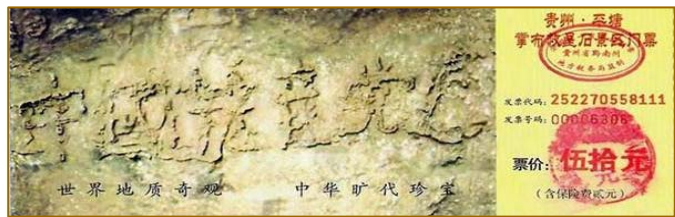 中國共産党亡
世界地质奇观 中华旷代珍宝
贵州·平塘
掌布救星石景区门票
贵州省黔南州
地方税务局监制
发票代码：252270558111
发票号码：00006306
票价：伍拾元
（含保险费贰元）